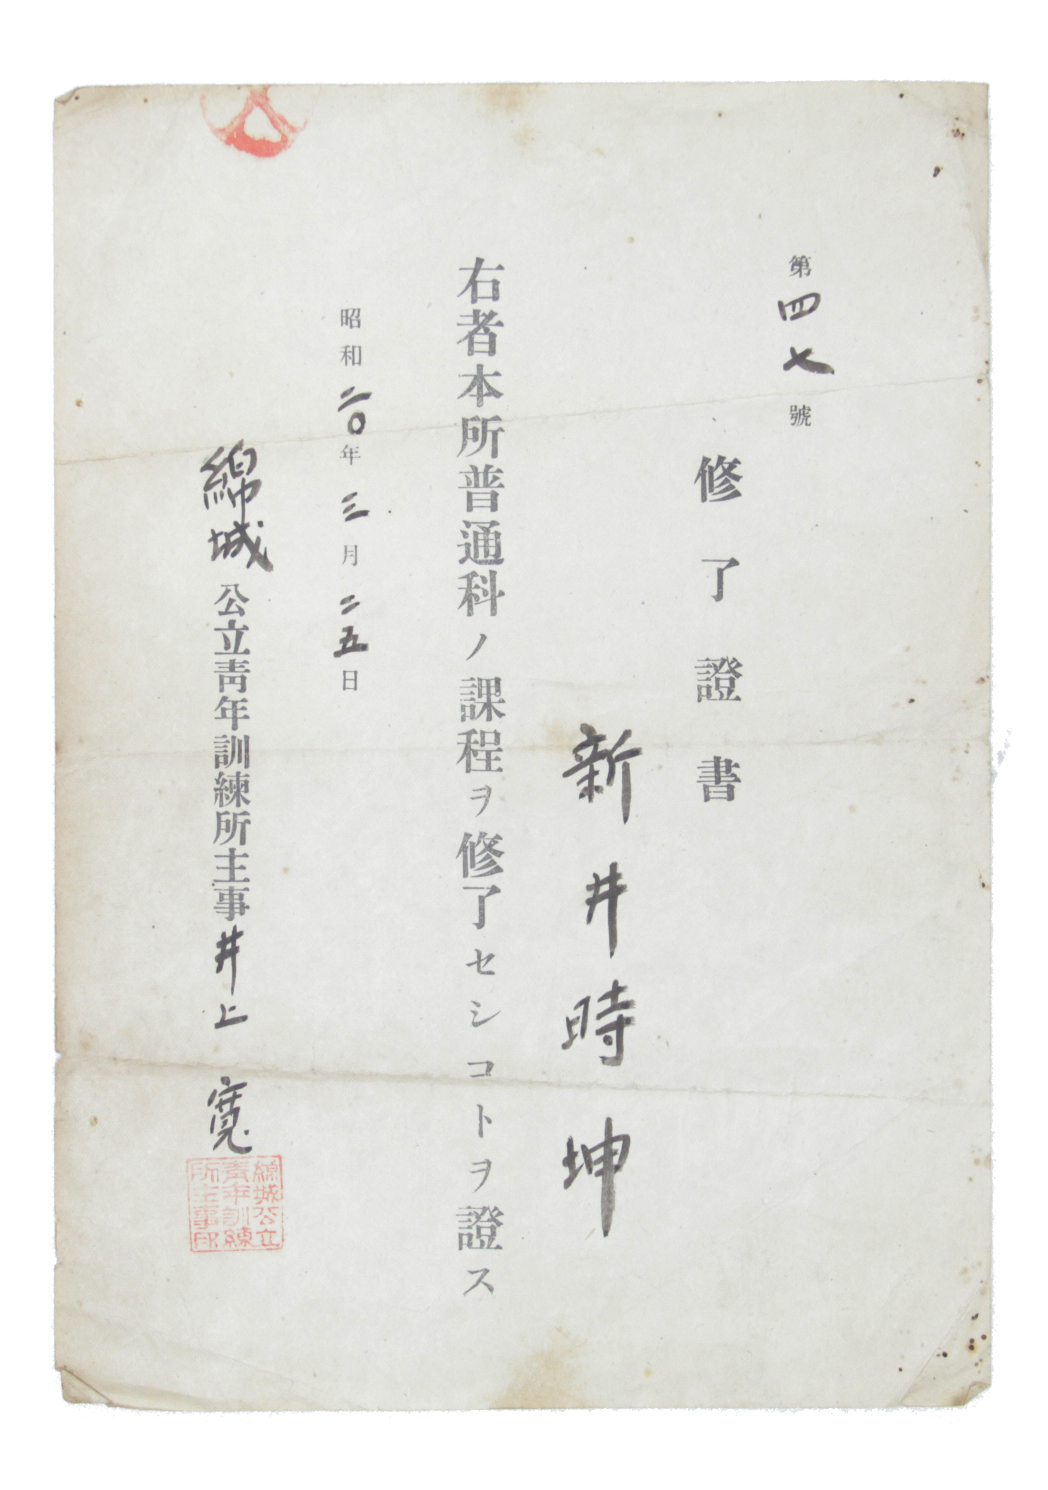 第四七號
修了證書
新井時坤
右者本所普通科ノ課程ヲ修了セシコトヲ證ス
昭和二〇年三月二五日
綿城公立靑年訓練所主事井上寛
綿城公立
青年訓練
所主事印